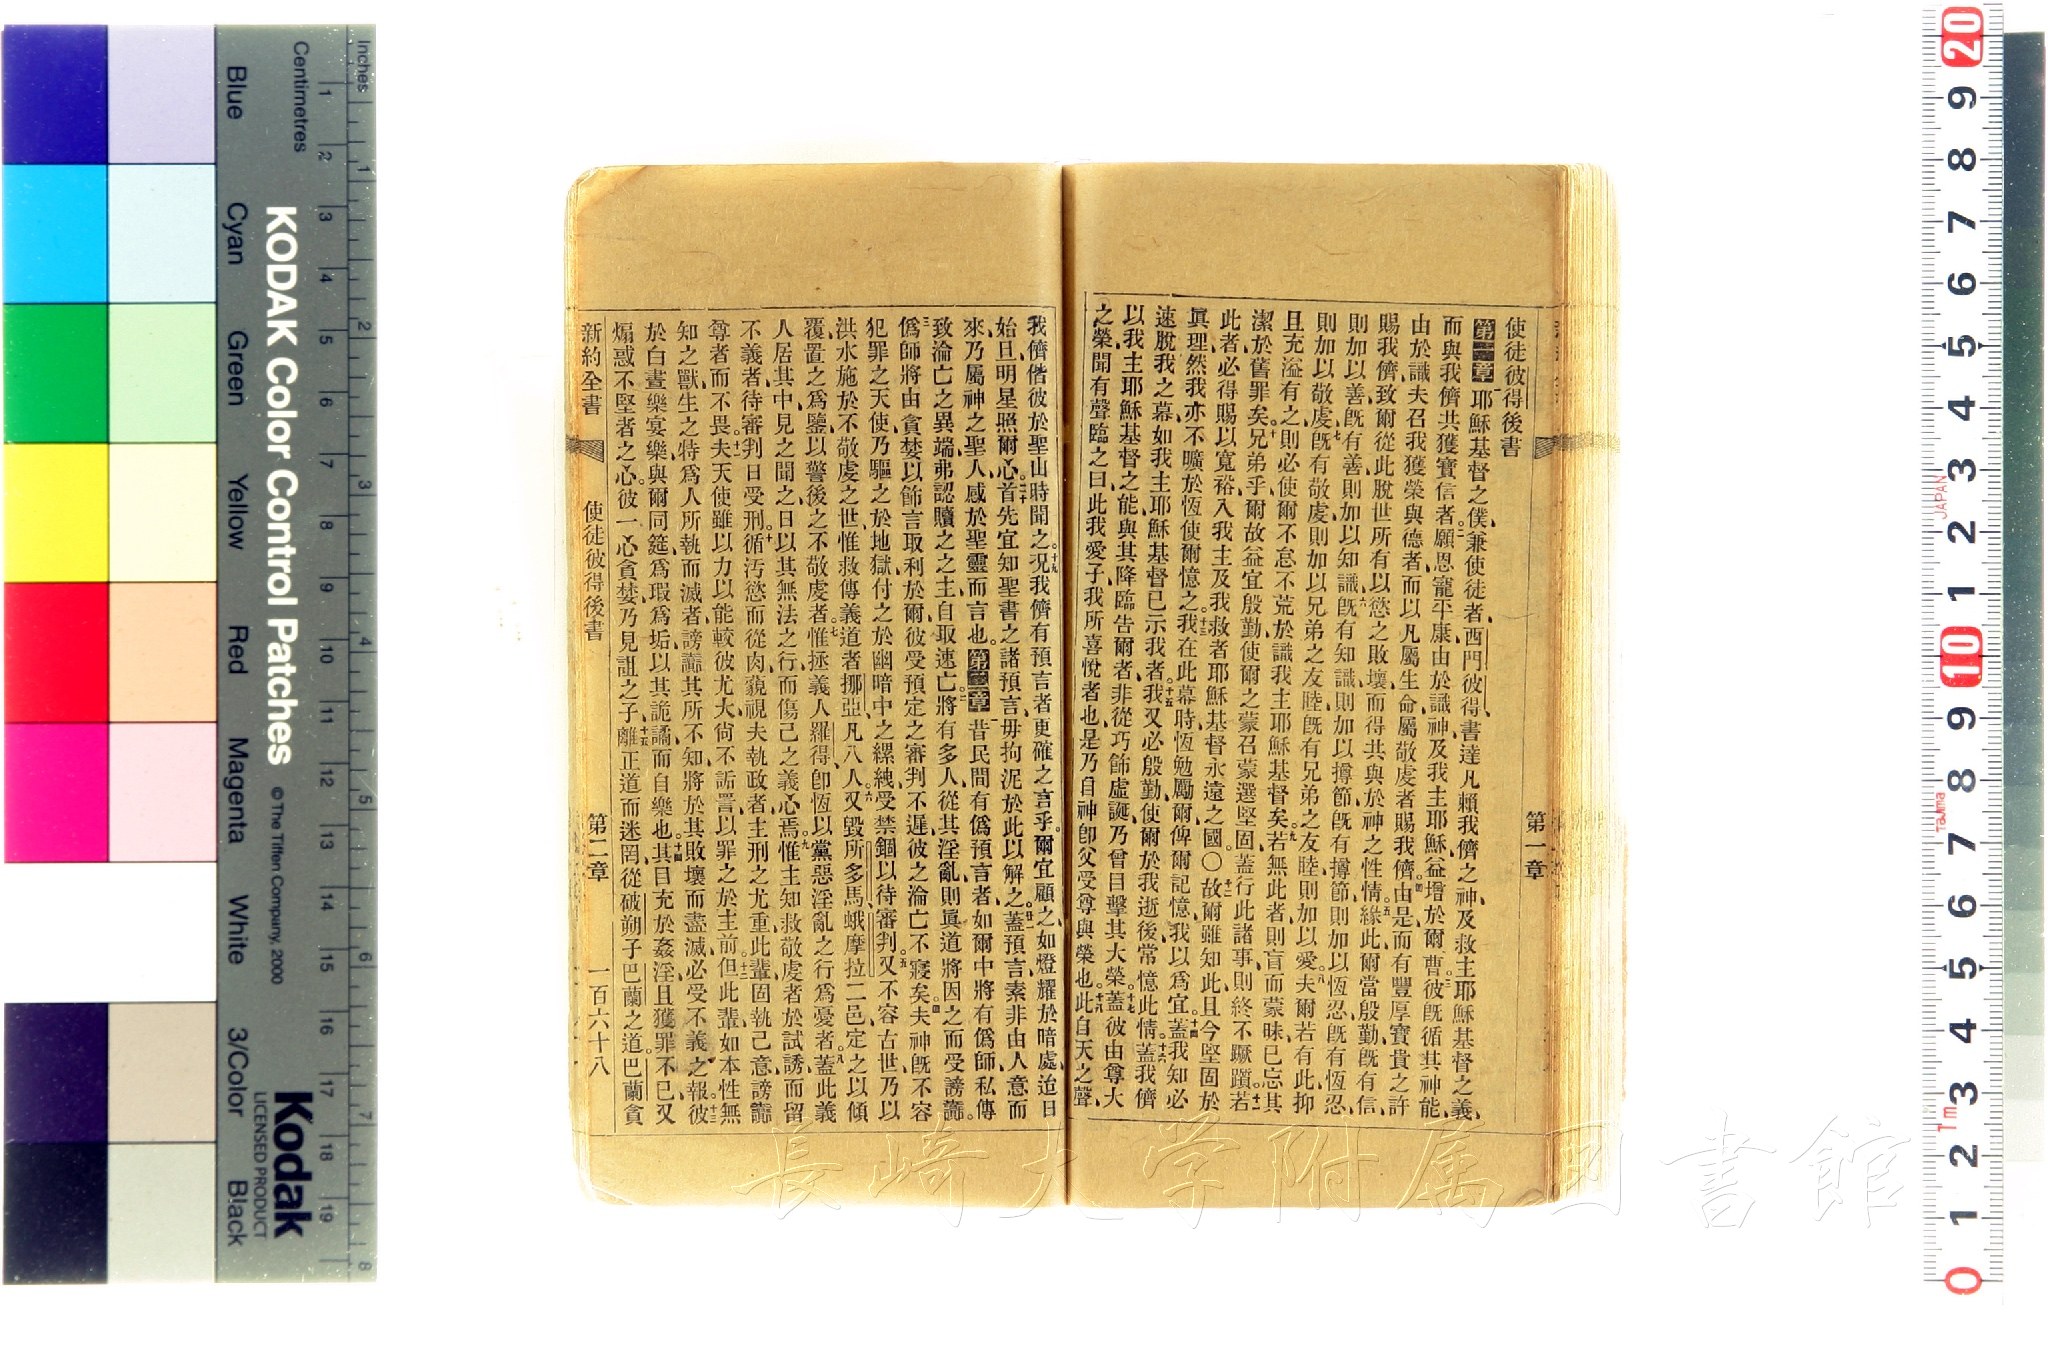 使徒彼得後書
第一章
第一章 耶穌基督之僕、兼使徒者、西門彼得、書達凡賴我儕之神、及救主耶穌基督之義、
而與我儕共獲寶信者、二願恩寵平康、由於識神及我主耶穌益增於爾曹、三彼既循其神能、
由於識夫召我獲榮與德者、而以凡屬生命屬敬虔者賜我儕、四由是而有豐厚寶貴之許
賜我儕、致爾從此脫世所有以慾之敗壞、而得共與於神之性情、五緣此、爾當殷勤、既有信、
則加以善、既有善、則加以知識、六既有知識、則加以撙節、既有撙節、則加以恆忍、既有恆忍、
則加以敬虔、七既有敬虔、則加以兄弟之友睦、既有兄弟之友睦、則加以愛、八夫爾若有此、抑
且充溢有之、則必使爾不怠不荒於識我主耶穌基督矣、九若無此者、則盲而蒙昧、已忘其
潔於舊罪矣、十兄弟乎、爾故益宜殷勤、使爾之蒙召蒙選堅固、蓋行此諸事、則終不蹶躓、十一若
此者、必得賜以寬裕入我主及我救者耶穌基督永遠之國、○十二故爾雖知此、且今堅固於
眞理、然我亦不曠於恆使爾憶之、十三我在此幕時、恆勉勵爾、俾爾記憶、我以爲宜、十四蓋我知必
速脫我之幕、如我主耶穌基督已示我者、十五我又必殷勤、使爾於我逝後常憶此情、十六蓋我儕
以我主耶穌基督之能、與其降臨告爾者、非從巧飾虛誕、乃曾目擊其大榮、十七蓋彼由尊大
之榮、聞有聲臨之曰、此我愛子、我所喜悅者也、是乃自神即父受尊與榮也、十八此自天之聲、
我儕偕彼於聖山時聞之、十九況我儕有預言者更確之言乎、爾宜顧之、如燈耀於暗處、迨日
始旦、明星照爾心、二十首先宜知聖書之諸預言、毋拘泥於此以解之、廿一蓋預言素非由人意而
來、乃屬神之聖人、感於聖靈而言也、第二章 一昔民間有僞預言者、如爾中將有僞師、私傳
致淪亡之異端、弗認贖之之主、自取速亡、二將有多人從其淫亂、則眞道將因之而受謗讟、
三僞師將由貪婪、以飾言取利於爾、彼受預定之審判不遲、彼之淪亡不寢矣、四夫神既不容
犯罪之天使、乃驅之於地獄、付之於幽暗中之縲絏、受禁錮以待審判、五又不容古世、乃以
洪水施於不敬虔之世、惟救傳義道者挪亞凡八人、六又毀所多馬蛾摩拉二邑、定之以傾
覆、置之爲鑒、以警後之不敬虔者、七惟拯義人羅得、即恆以黨惡淫亂之行爲憂者、八蓋此義
人居其中、見之聞之、日以其無法之行而傷己之義心焉、九惟主知救敬虔者於試誘、而留
不義者、待審判日受刑、十循汚慾而從肉、藐視夫執政者、主刑之尤重、此輩固執己意、謗讟
尊者而不畏、十一夫天使雖以力以能較彼尤大、尙不詬詈以罪之於主前、十二但此輩如本性無
知之獸、生之特爲人所執而滅者、謗讟其所不知、將於其敗壞而盡滅、必受不義之報、十三彼
於白晝樂宴樂、與爾同筵、爲瑕爲垢、以其詭譎而自樂也、十四其目充於姦淫、且獲罪不已、又
煽惑不堅者之心、彼一心貪婪、乃見詛之子、十五離正道而迷罔、從破朔子巴蘭之道、巴蘭貪
新約全書
使徒彼得後書
第二章
一百六十八
KODAK Color Control Patches
© The Tiffen Company, 2000
Kodak
LICENSED PRODUCT
Inches
Centimetres
Blue
Cyan
Green
Yellow
Red
Magenta
White
3/Color
Black
JAPAN
Tajima
Tm
長崎大学附属図書館